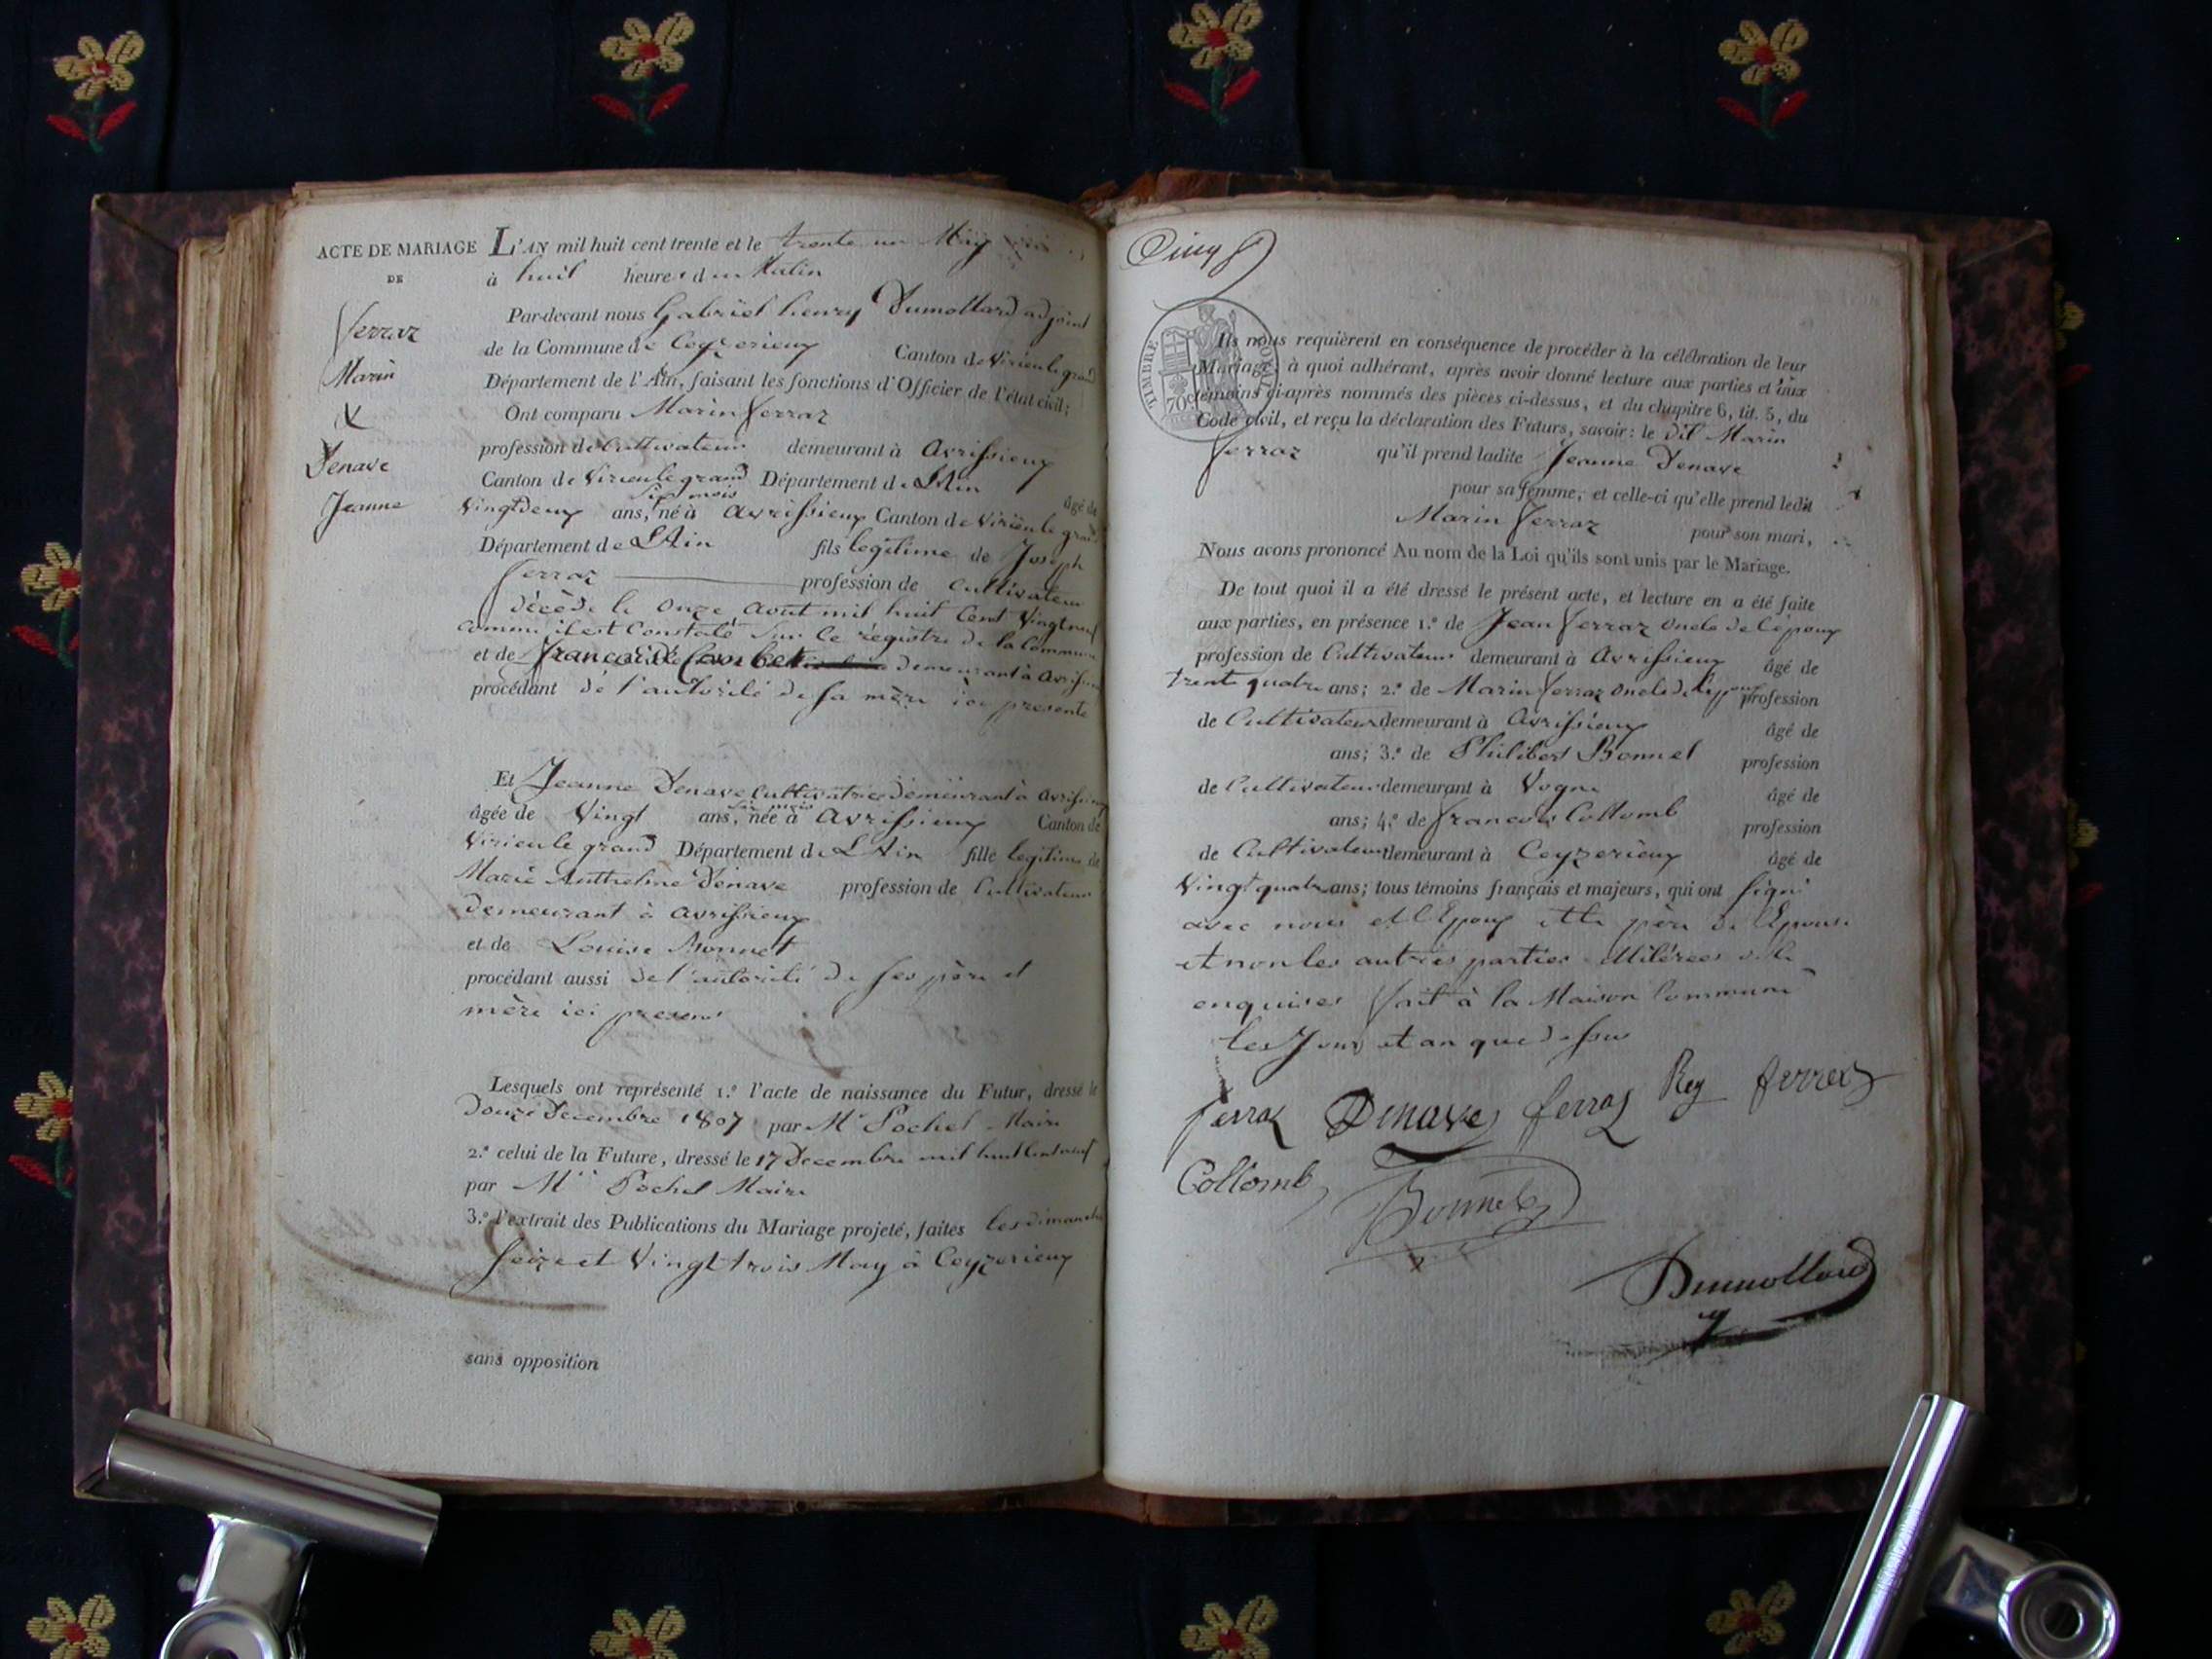 ACTE DE MARIAGE
DE
Ferraz
Marin
&
Denave
Jeanne
L'AN mil huit cent trente et le trente un May
à huit heures du Matin
Par-devant nous Gabriel henry Dumollard adjoint
de la Commune de Ceyzerieux Canton de Virieu le grand
Département de l'Ain, faisant les fonctions d'Officier de l'état civil;
Ont comparu Marin Ferraz
profession de Cultivateur demeurant à Avrissieux
Canton de Virieu le grand Département de L'Ain âgé de
six mois
Vingt deux ans, né à Avrissieux Canton de Virieu le grand
Département de L'Ain fils legitime de Joseph
Ferraz profession de Cultivateur
décédé le onze avout mil huit Cent Vingt neuf
comme il est Constaté sur le régistre de la Commune
et de Francoise Courbet demeurant à Avrissieux
procédant de l'autorité de sa mère ici presente
Et Jeanne Denave Cultivatrice demeurant à Avrissieux
six mois
âgée de Vingt ans, née à Avrissieux Canton de
Virieu le grand Département de L'Ain fille legitime de
Marie Anthelme Denave profession de Cultivateur
demeurant à Avrissieux
et de Louise Monnet
procédant aussi de l'autorité de ses père et
mère ici presens
Lesquels ont représenté 1.º l'acte de naissance du Futur, dressé le
Douze Decembre 1807 par Mr Pochet Maire
2.º celui de la Future, dressé le 17 Decembre mil huit Cent neuf
par Mr Pochet Maire
3.º l'extrait des Publications du Mariage projeté, faites les dimanche
seize et Vingt trois May à Ceyzerieux
sans opposition
Cinq
TIMBRE ROYAL
70c
Ils nous requièrent en conséquence de procéder à la célébration de leur
Mariage, à quoi adhérant, après avoir donné lecture aux parties et aux
témoins ci-après nommés des pièces ci-dessus, et du chapitre 6, tit. 5, du
Code civil, et reçu la déclaration des Futurs, savoir: le dit Marin
Ferraz qu'il prend ladite Jeanne Denave
pour sa femme; et celle-ci qu'elle prend ledit
Marin Ferraz pour son mari,
Nous avons prononcé Au nom de la Loi qu'ils sont unis par le Mariage.
De tout quoi il a été dressé le présent acte, et lecture en a été faite
aux parties, en présence 1.º de Jean Ferraz oncle de l'époux
profession de Cultivateur demeurant à Avrissieux âgé de
trente quatre ans; 2.º de Marin Ferraz oncle de l'époux profession
de Cultivateur demeurant à Avrissieux âgé de
ans; 3.º de Philibert Bonnet profession
de Cultivateur demeurant à Vogne âgé de
ans; 4.º de Francois Collomb profession
de Cultivateur demeurant à Ceyzerieux âgé de
Vingt quatre ans; tous témoins français et majeurs, qui ont signé
avec nous et l'Epoux et le père de l'Epouse
et non les autres parties illitérées de ce
enquises fait à la Maison Commune
les Jour et an que dessus
ferraz Denave ferraz Rey ferraz
Collomb Bonnet
Dumollard